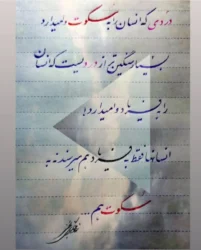 دردی که انسان را به سکوت وامیدارد
بسیار سنگین تر از دردیست که انسان
را به فریاد وامیدارد!
انسانها فقط به فریاد هم میرسند نه به
سکوت هم...